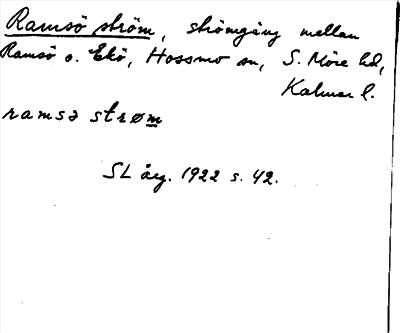 Ramsö ström, strömgång mellan
Ramsö o. Ekö, Hossmo sn, S. Möre hd,
Kalmar l.
ramsə strøm
SL årg. 1922 s. 42.